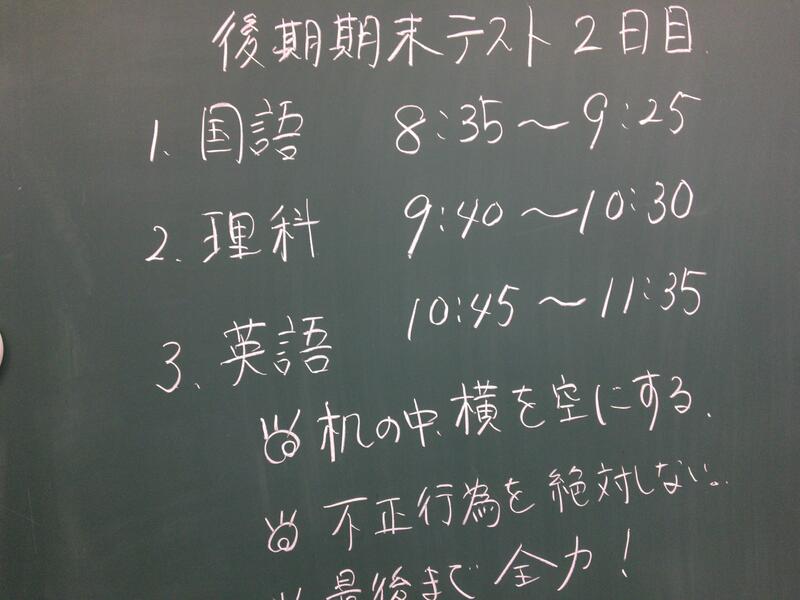 後期期末テスト2日目
1. 国語 8:35～9:25
2. 理科 9:40～10:30
3. 英語 10:45～11:35
机の中、横を空にする.
不正行為を絶対しない.
最後まで全力!